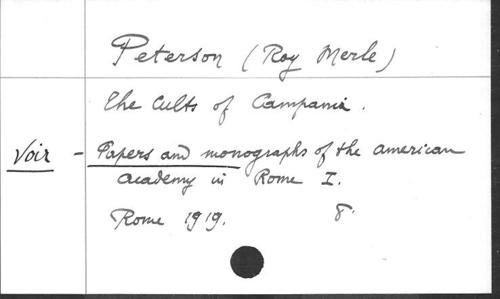 Peterson (Roy Merle)
The Cults of Campania.
Voir - Papers and monographs of the american
academy in Rome I.
Rome 1919. 8°.